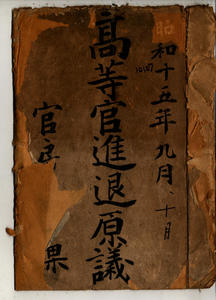 昭和十五年九月、十月
高等官進退原議
官 果